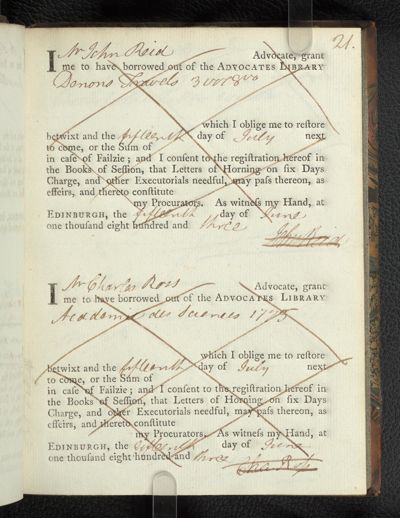 21.
I Mr John Reid Advocate, grant
me to have borrowed out of the ADVOCATES LIBRARY
Denons Travels 3 vols 8vo
which I oblige me to reſtore
betwixt and the fifteenth day of July next
to come, or the Sum of
in caſe of Failzie; and I conſent to the regiſtration hereof in
the Books of Seſſion, that Letters of Horning on ſix Days
Charge, and other Executorials needful, may paſs thereon, as
effeirs, and thereto conſtitute
my Procurators. As witneſs my Hand, at
EDINBURGH, the fifteenth day of June
one thouſand eight hundred and three
John Reid
I Mr Charles Ross Advocate, grant
me to have borrowed out of the ADVOCATES LIBRARY
Academie des Sciences 1775
which I oblige me to reſtore
betwixt and the fifteenth day of July next
to come, or the Sum of
in caſe of Failzie; and I conſent to the regiſtration hereof in
the Books of Seſſion, that Letters of Horning on ſix Days
Charge, and other Executorials needful, may paſs thereon, as
effeirs, and thereto conſtitute
my Procurators. As witneſs my Hand, at
EDINBURGH, the fifteenth day of June
one thouſand eight hundred and three